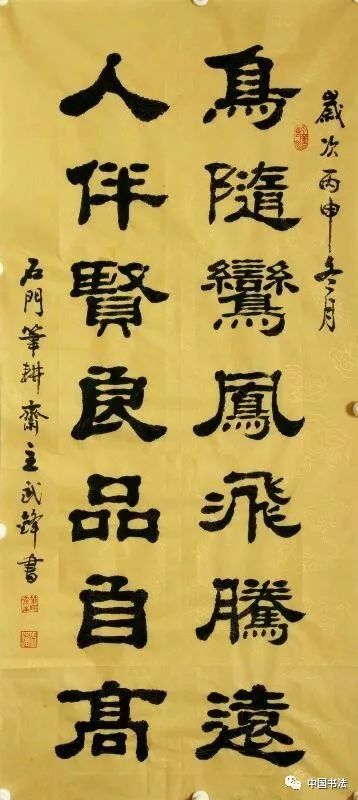 歲次丙申冬月
鳥隨鸞鳳飛騰遠
人伴賢良品自高
石門筆耕齋主武鋒書
中国书法